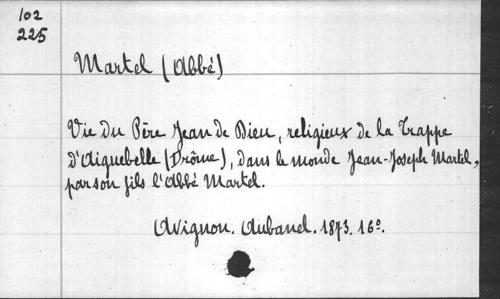 102
225
Martel (Abbé)
Vie du Père Jean de Dieu, religieux de la Trappe
d'Aiguebelle (Drôme), dans le monde Jean-Joseph Martel,
par son fils l'Abbé Martel.
Avignon. Aubanel. 1873. 16º.